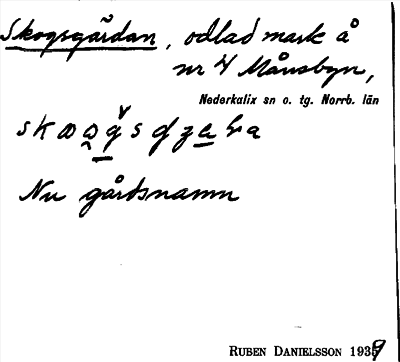 Skogsgärdan, odlad mark å
nr 4 Månsbyn,
Nederkalix sn o. tg. Norrb. län
Nu gårdsnamn
RUBEN DANIELSSON 1939